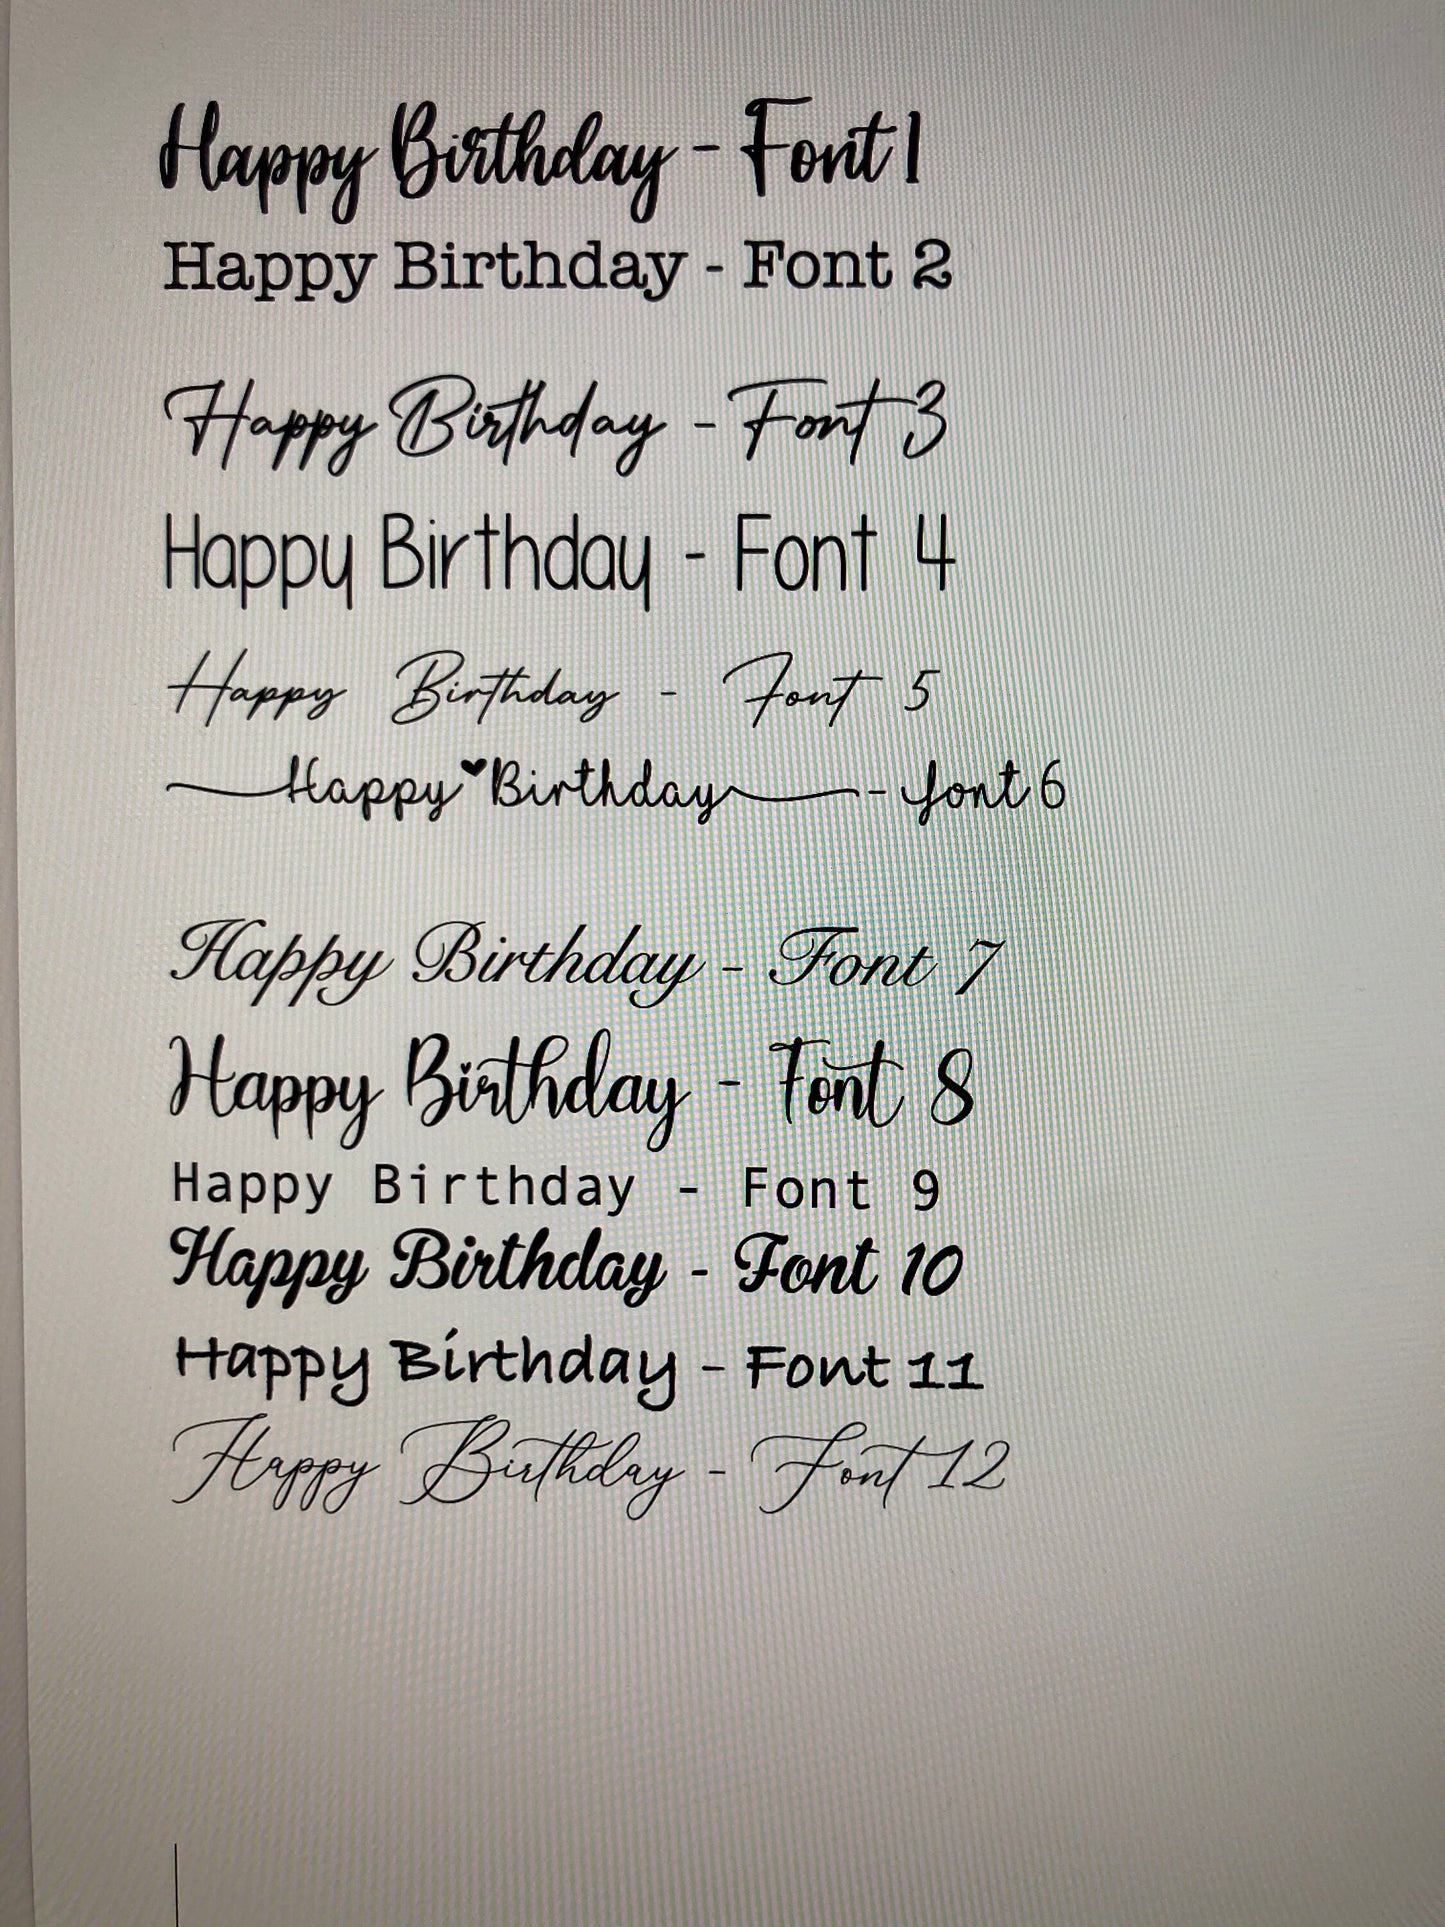 Happy Birthday - Font 1
Happy Birthday - Font 2
Happy Birthday - Font 3
Happy Birthday - Font 4
Happy Birthday - Font 5
Happy♥Birthday - font 6
Happy Birthday - Font 7
Happy Birthday - Font 8
Happy Birthday - Font 9
Happy Birthday - Font 10
Happy Birthday - Font 11
Happy Birthday - Font 12